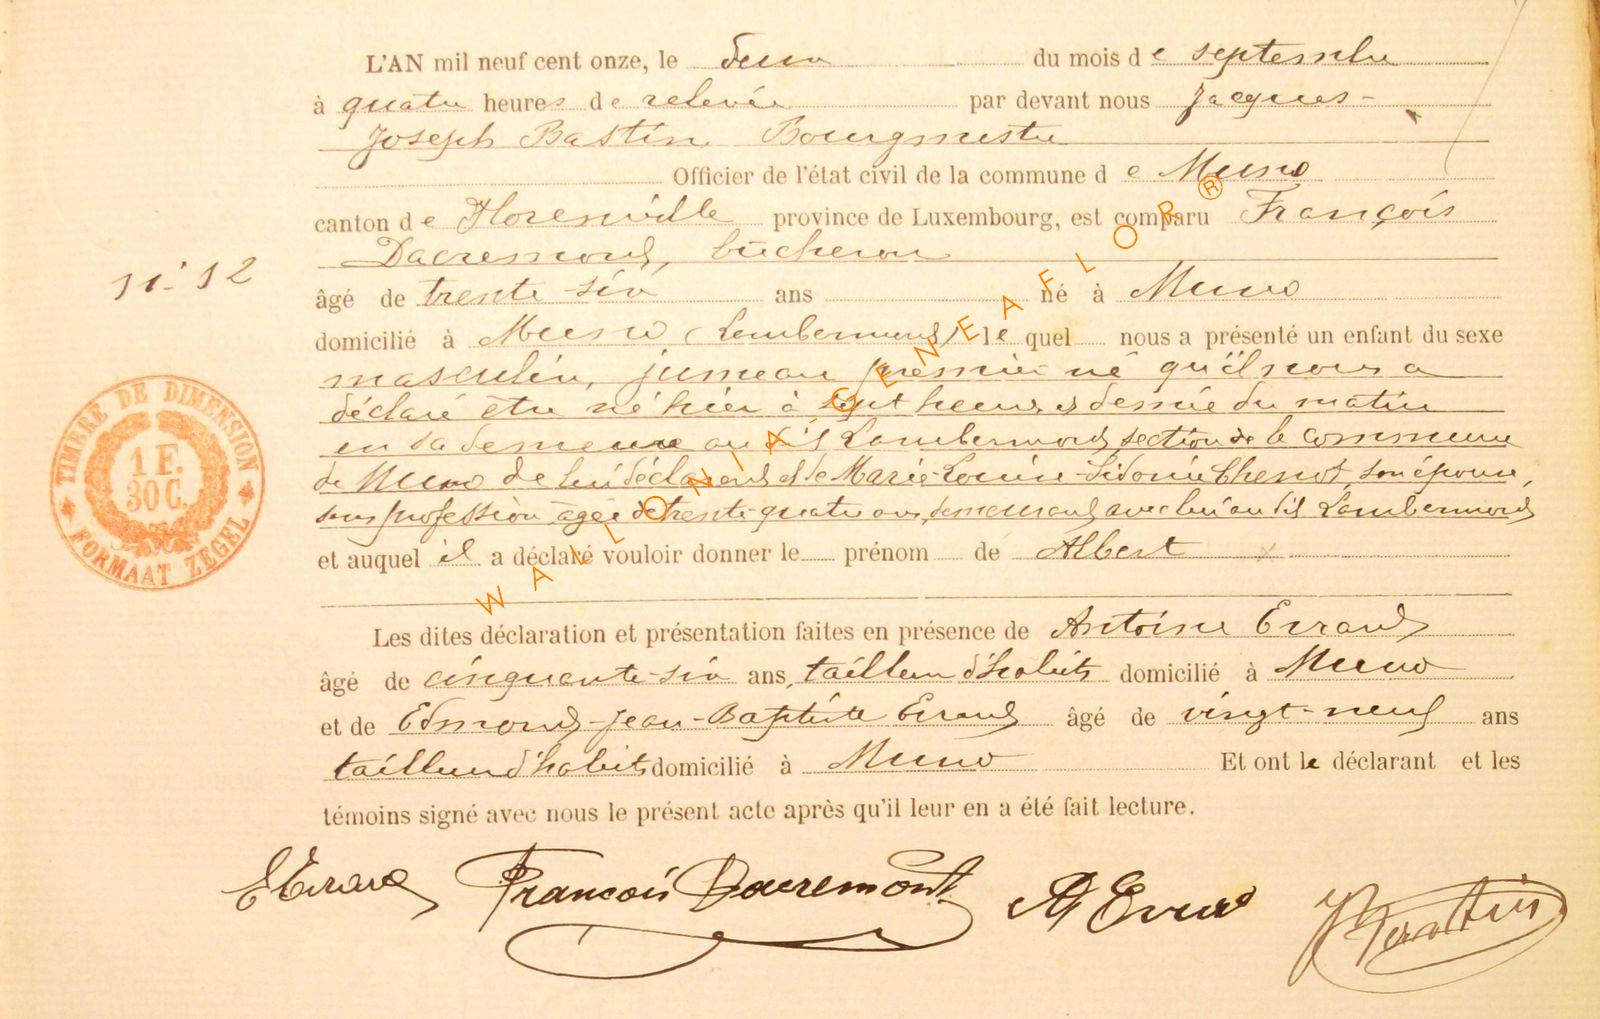 L'AN mil neuf cent onze, le deux du mois de septembre
à quatre heures de relevée par devant nous Jacques-
Joseph Bastin Bourgmestre
Officier de l'état civil de la commune de Muno
canton de Florenville province de Luxembourg, est comparu François
Dacremont, bûcheron
11-12
âgé de trente-six ans né à Muno
domicilié à Muno (Lambermont) lequel nous a présenté un enfant du sexe
masculin, jumeau premier né qu'il nous a
déclaré être né hier à sept heures et demie du matin
en sa demeure au dit Lambermont, section de la commune
de Muno de lui déclarant et de Marie-Louise-Sidonie Chenot, son épouse,
sans profession, âgée de trente-quatre ans, demeurant avec lui au dit Lambermont
et auquel il a déclaré vouloir donner le prénom de Albert x
Les dites déclaration et présentation faites en présence de Antoine Evrard
âgé de cinquante-six ans, tailleur d'habits domicilié à Muno
et de Edmond-Jean-Baptiste Evrard âgé de vingt-neuf ans
tailleur d'habits domicilié à Muno Et ont le déclarant et les
témoins signé avec nous le présent acte après qu'il leur en a été fait lecture.
E Evrard François Dacremont A Evrard J Bastin
TIMBRE DE DIMENSION
1 F.
30 C.
FORMAAT ZEGEL
WALLONIA GENEAFLOR ®